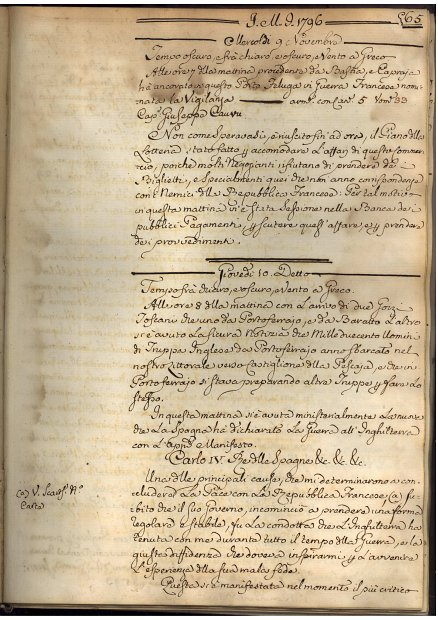 J. M. J. 1796
265
Mercoldì 9 Novembre
Tempo oscuro, e frà chiaro, e oscuro, e Vento a Greco
Alle ore 7 della mattina procedente da Bastia, e Capraja
hà ancorato in questo Porto Feluga di Guerra Francese nomi-
nata la Vigilanza armta con Can. 5 Uom. 33
Capo Giuseppe
Non come speravasi, è riuscito fin' ad ora, il Piano della
Lotteria, stato fatto p accomodare L'affari di questo commer-
cio, poiche molti Negozianti rifiutano di prendere dei
Biglietti, e specialmente quei che non anno corrispondenza
con i Nemici della Repubblica Francese: Per il motivo
in questa mattina vi è stata Sessione nella Banca dei
pubblici Pagamenti p discutere quest'affare, e p prendere
dei provvedimenti.
Giovedì 10. Detto
Tempo frà chiaro, e oscuro, e Vento a Greco.
Alle ore 8 della mattina con L'arrivo di due Gozzi
Toscani che uno da Portoferrajo, e da Baratto L'altro
si è avuto La sicura Notizia che Mille duecento Uomini
di Truppe Inglese da Portoferrajo anno sbarcato nel
nostro Littorale verso Castiglione della Pescaja, e che in
Portoferrajo si stava preparando altre Truppe p fare Lo
stesso.
In questa mattina si è avuta ministerialmente La nuova
che La Spagna hà dichiarato La Guerra all' Inghilterra
con L'appo Manifesto.
Carlo IV. Re delle Spagne &c. &c. &c.
Una delle principali cause, che mi determinarono a con-
cludere La Pace con La Repubblica Francese, (a) su-
bito che il suo Governo, incominciò a prendere una forma
regolare e stabile, fù La condotta che L'Inghilterra hà
tenuta con me durante tutto il tempo della Guerra, e la
giusta diffidenza che doveva inspirarmi p L'avvenire
L'esperienza della sua mala fede.
Questa si è manifestata nel momento il più critico
(a) V. No
Carte